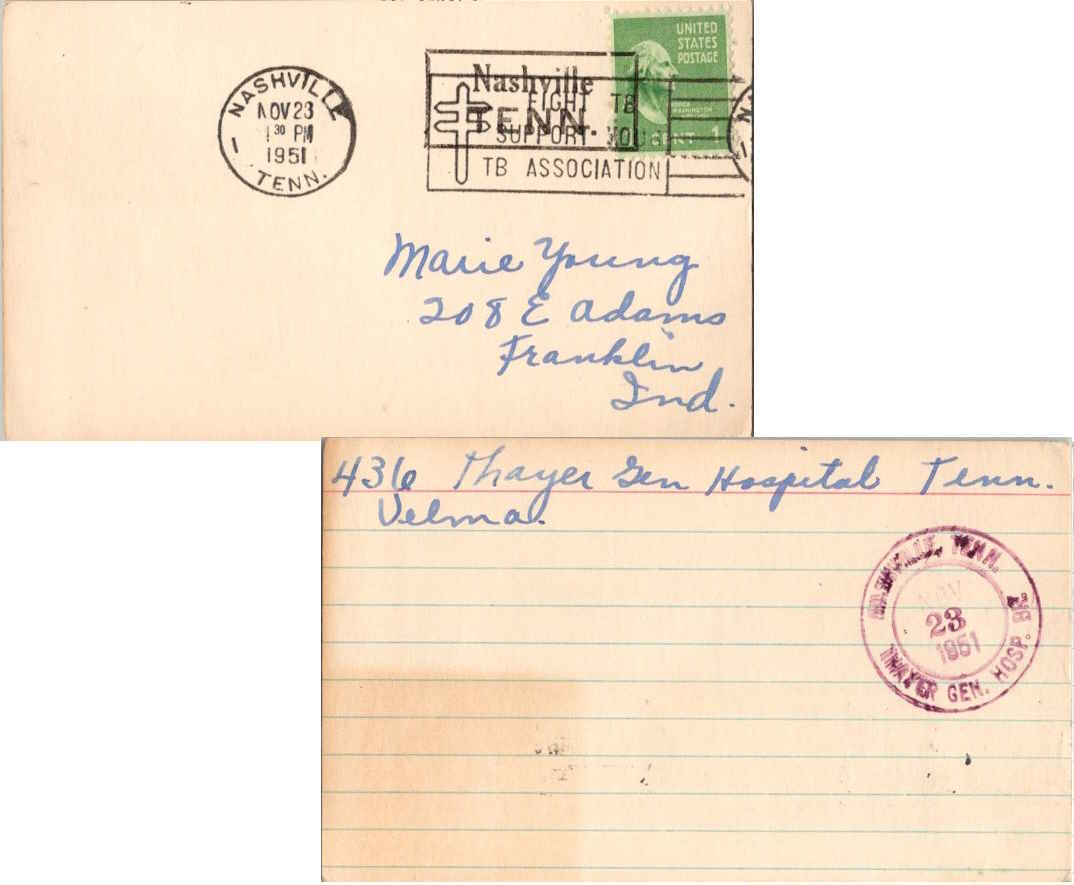 NASHVILLE
NOV 23
1 30 PM
1951
TENN.
1
Nashville
TENN.
FIGHT TB
SUPPORT YOU
TB ASSOCIATION
UNITED
STATES
POSTAGE
WASHINGTON
CENT 1
Marie Young
208 E Adams
Franklin
Ind.
436 Thayer Gen Hospital Tenn.
Velma.
NASHVILLE, TENN.
NOV
23
1951
THAYER GEN. HOSP. BR.